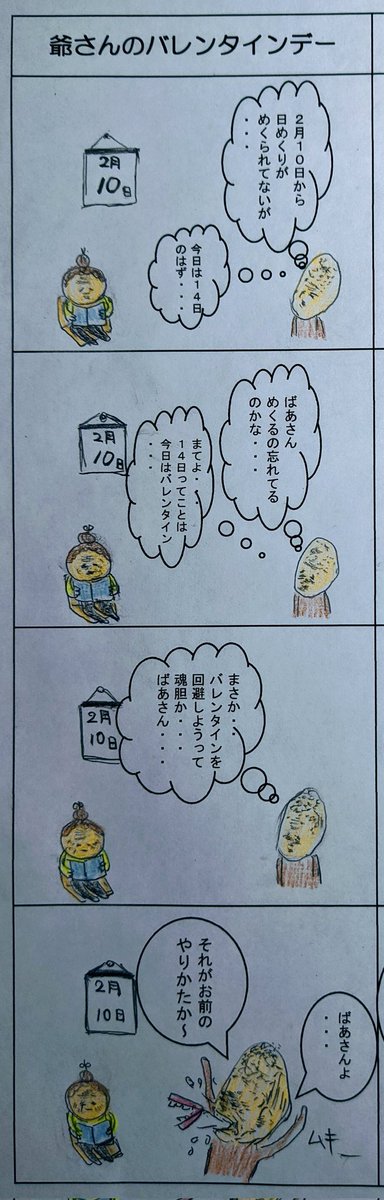 爺さんのバレンタインデー
2月10日から
日めくりが
めくられてないが
・・・
今日は14日
のはず・・・・
2月
10日
ばあさん
めくるの忘れてる
のかな・・・
まてよ・・
14日ってことは
今日はバレンタイン
・・・・
2月
10日
まさか・・
バレンタインを
回避しようって
魂胆か・・・
ばあさん・・・
2月
10日
ばあさんよ
・・・
それがお前の
やりかたか～
2月
10日
ムキ_